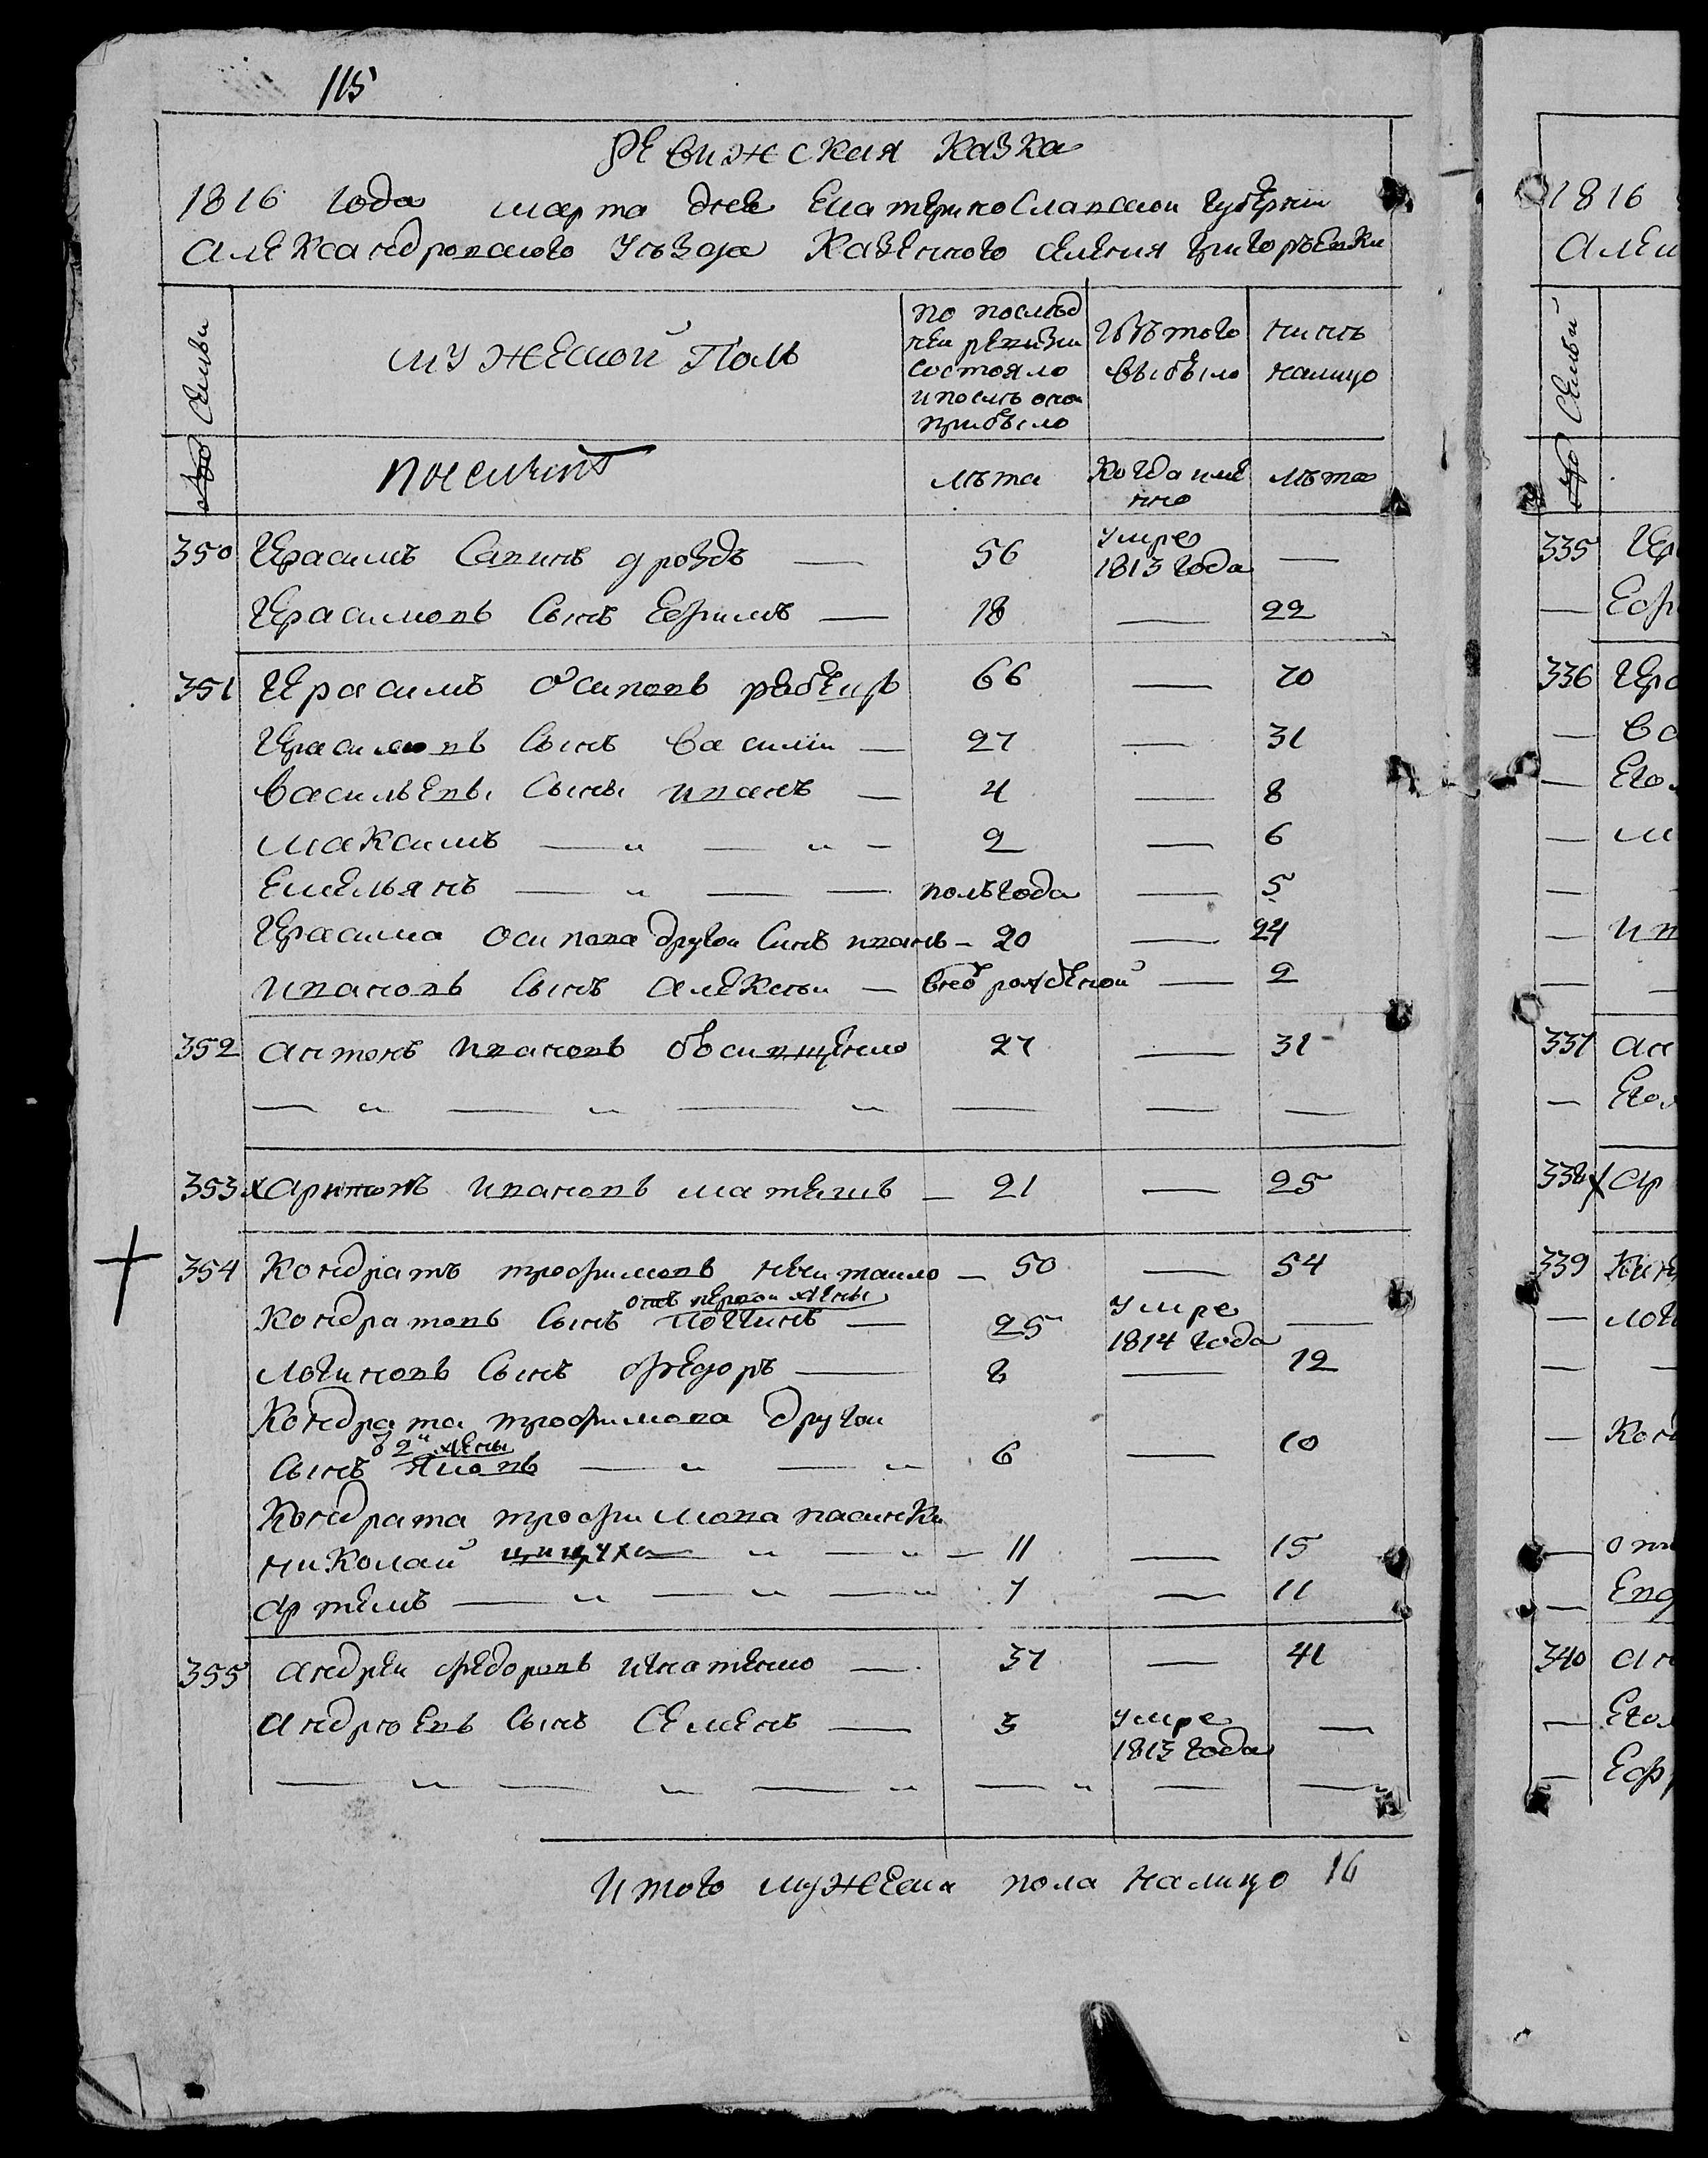 115
Ревижская Казка
1816 года марта дня Екатеринославской губернии
Александровского уезда Казенного селения Григорьевки
Семьи
мужеской Полъ
по послед
ней ревизии
состояло
и после оной
прибыло
Изъ того
выбыло
ныне
налицо
лета
Когда име
нно
лета
350 Герасимъ Савинъ дроздъ — 56 умре —
1813 года
Герасимовъ Сынъ Ефимъ — 18 — 22
351 Герасимъ Осиповъ рябецъ 66 — 70
Герасимовъ Сынъ Василии — 27 — 31
Васильевы Сыны иванъ — 4 — 8
максимъ — „ — „ — 2 — 6
Емельянъ — „ — — полъгода — 5
Герасима Осипова другои Синъ иванъ — 20 — 24
ивановъ Сынъ Алексеи — вновъ рожденой — 2
352 Антонъ ивановъ 27 — 31
— „ — „ — „ — — —
353 харитонъ ивановъ — 21 — 25
354 Кондратъ трофимовъ — 50 — 54
отъ первои жены
Кондратовъ Сынъ Логинъ — 25 умре —
1814 года
Логиновъ Сынъ Федоръ — 8 — 12
Кондрата трофимова другои
З 2й жены
Сынъ Яковъ — „ — „ 6 — 10
Кондрата трофимова пасинки
николай „ — „ — 11 — 15
Артемъ — „ — „ — „ 7 — 11
355 Андреи Федоровъ игнатенко — 37 — 41
Андреевъ Сынъ Семенъ — 3 умре —
1813 года
— „ — „ — „ — „ — —
Итого мужеска пола налицо 16
1816
335
336
337
338
339
340